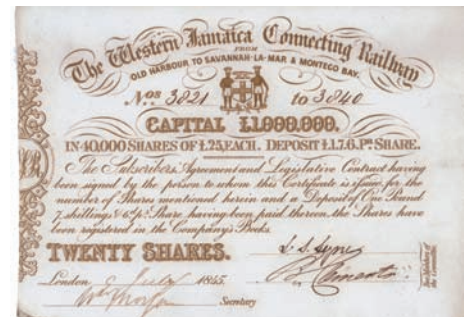 The Western Jamaica Connecting Railway
FROM
OLD HARBOUR TO SAVANNAH-LA-MAR & MONTEGO BAY.
Nos 3821 to 3840
CAPITAL £1,000,000.
IN 40,000 SHARES OF £25, EACH. DEPOSIT £1.7.6. Pr SHARE.
The Subscribers Agreement and Legislative Contract having
been signed by the person to whom this Certificate is issued for the
number of Shares mentioned herein and a Deposit of One Pound
7 shillings & 6d pr Share having been paid thereon, the Shares have
been registered in the Company's Books.
TWENTY SHARES.
London July 1845.
Secretary